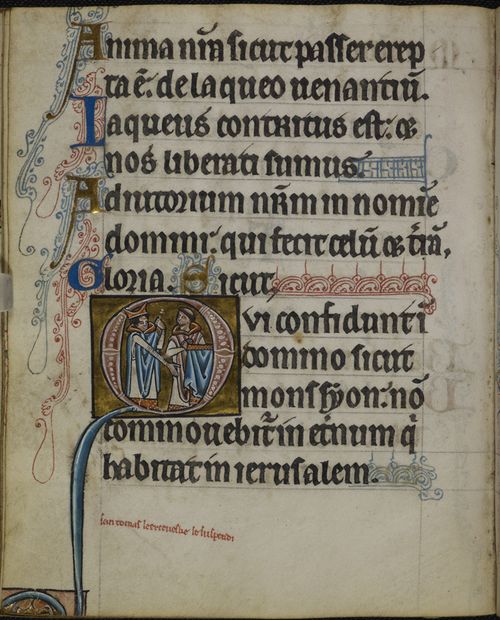 Anima nr̄m sicut passer erep
ta ē: de laqueo uenantiū.
Laqueus contritus est: ⁊
nos liberati sumus.
Adiutorium nr̄m in nomīe
domini: qui fecit celū ⁊ t̄rā,
Gloria. Sicut
Qvi confidunt ī
domino sicut
mons syon: nō
commouebit̄ in et̄num q̄
habitat in ierusalem.